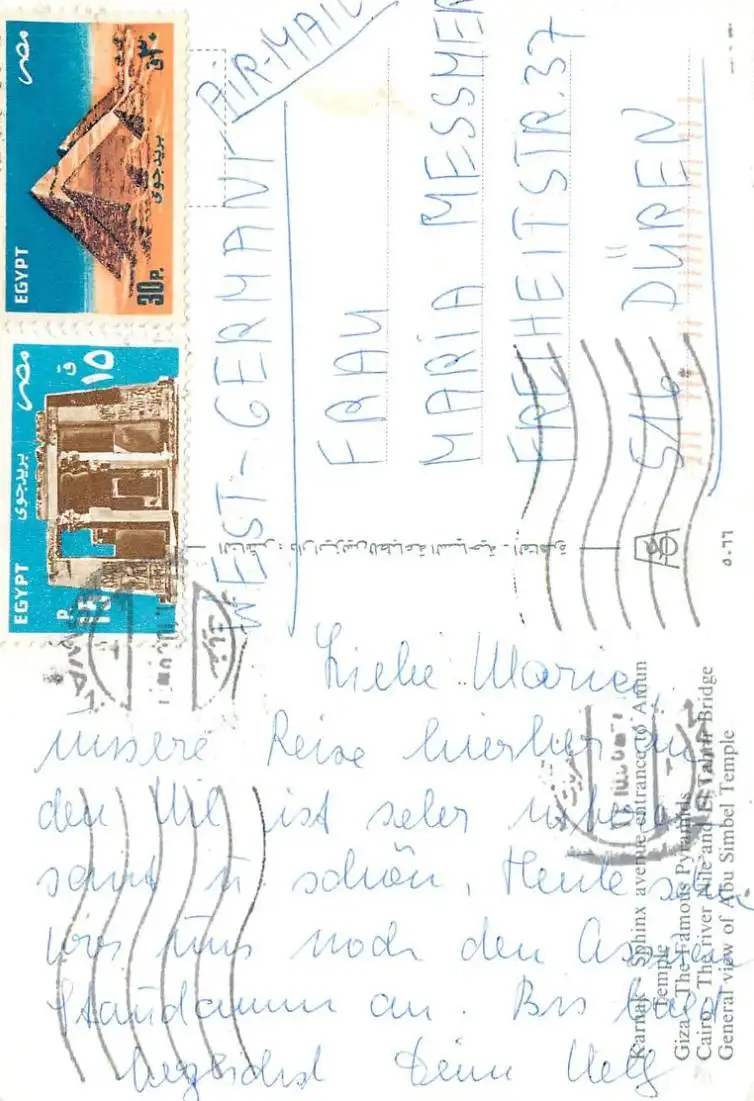 مصر
٣٠ ق
بريد جوى
EGYPT
30P.
مصر
١٥ ق
بريد جوى
EGYPT
15 P
AIR-MAIL
WEST-GERMANY
FRAU
MARIA MESSMER
FREIHEITSTR. 37
516 DÜREN
٥٠٦٦
Liebe Maria,
unsere Reise hierher an
den Nil ist sehr interes
sant u. schön. Heute sehen
wir uns noch den Assuan
Staudamm an. Bis bald
herzlichst Deine
Karnak: Sphinx avenue entrance to Amun
Temple
Giza: The Famous Pyramids
Cairo: The river Nile and El Tahrir Bridge
General view of Abu Simbel Temple